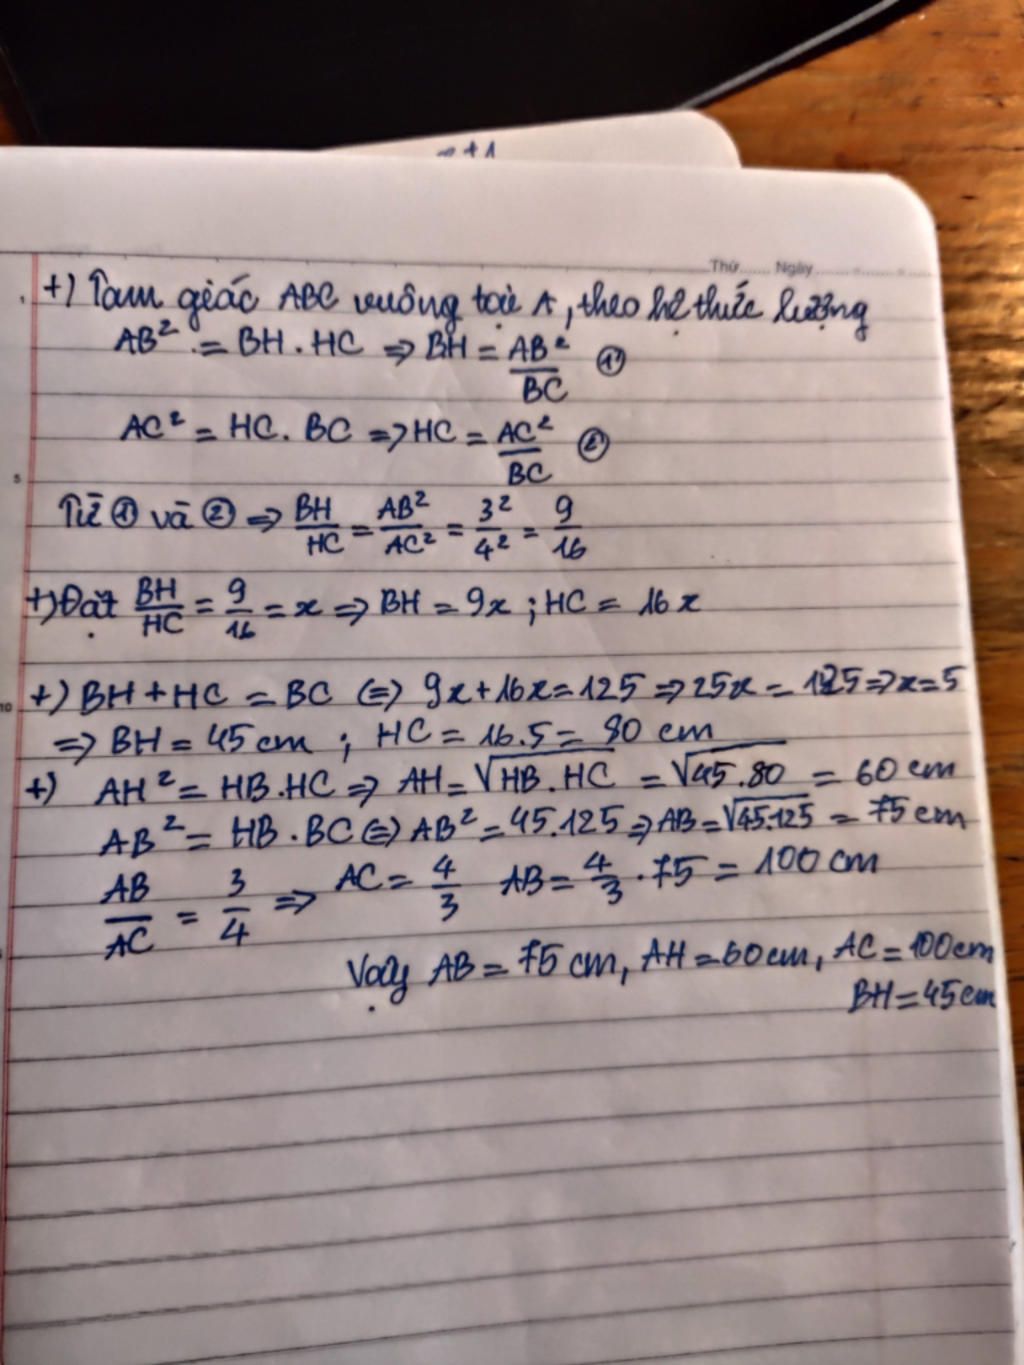 x+1
Thứ...... Ngày..............
+) Tam giác ABC vuông tại A, theo hệ thức lượng
AB² = BH.HC => BH = AB²/BC ①
AC² = HC.BC => HC = AC²/BC ②
5
Từ ① và ② => BH/HC = AB²/AC² = 3²/4² = 9/16
+) Đặt BH/HC = 9/16 = x => BH = 9x ; HC = 16x
10
+) BH + HC = BC <=> 9x + 16x = 125 => 25x = 125 => x = 5
=> BH = 45 cm ; HC = 16.5 = 80 cm
+) AH² = HB.HC => AH = √HB.HC = √45.80 = 60 cm
AB² = HB.BC <=> AB² = 45.125 => AB = √45.125 = 75 cm
AB/AC = 3/4 => AC = 4/3 AB = 4/3 . 75 = 100 cm
Vậy AB = 75 cm, AH = 60cm, AC = 100cm
BH = 45cm